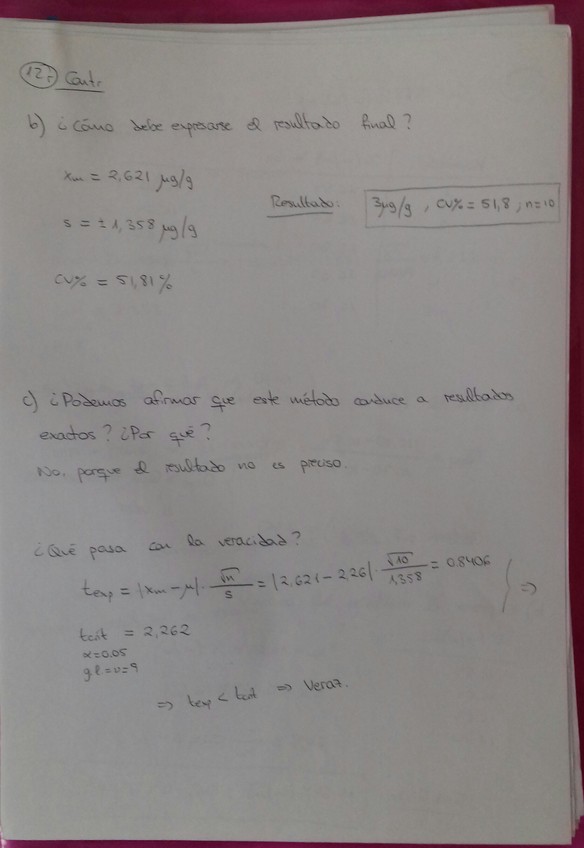 12.- Cont.
b) ¿Cómo debe expresarse el resultado final?
xm = 2,621 µg/g
Resultado: 3µg/g , CV% = 51,8 ; n=10
s = ± 1,358 µg/g
CV% = 51,81%
c) ¿Podemos afirmar que este método conduce a resultados
exactos? ¿Por qué?
No, porque el resultado no es preciso.
¿Qué pasa con la veracidad?
texp = |xm − µ| · √n/s = |2,621 − 2,26| · √10/1,358 = 0,8406 } ⇒
tcrit = 2,262
α=0,05
gl=υ=9
⇒ texp < tcrit ⇒ Veraz.